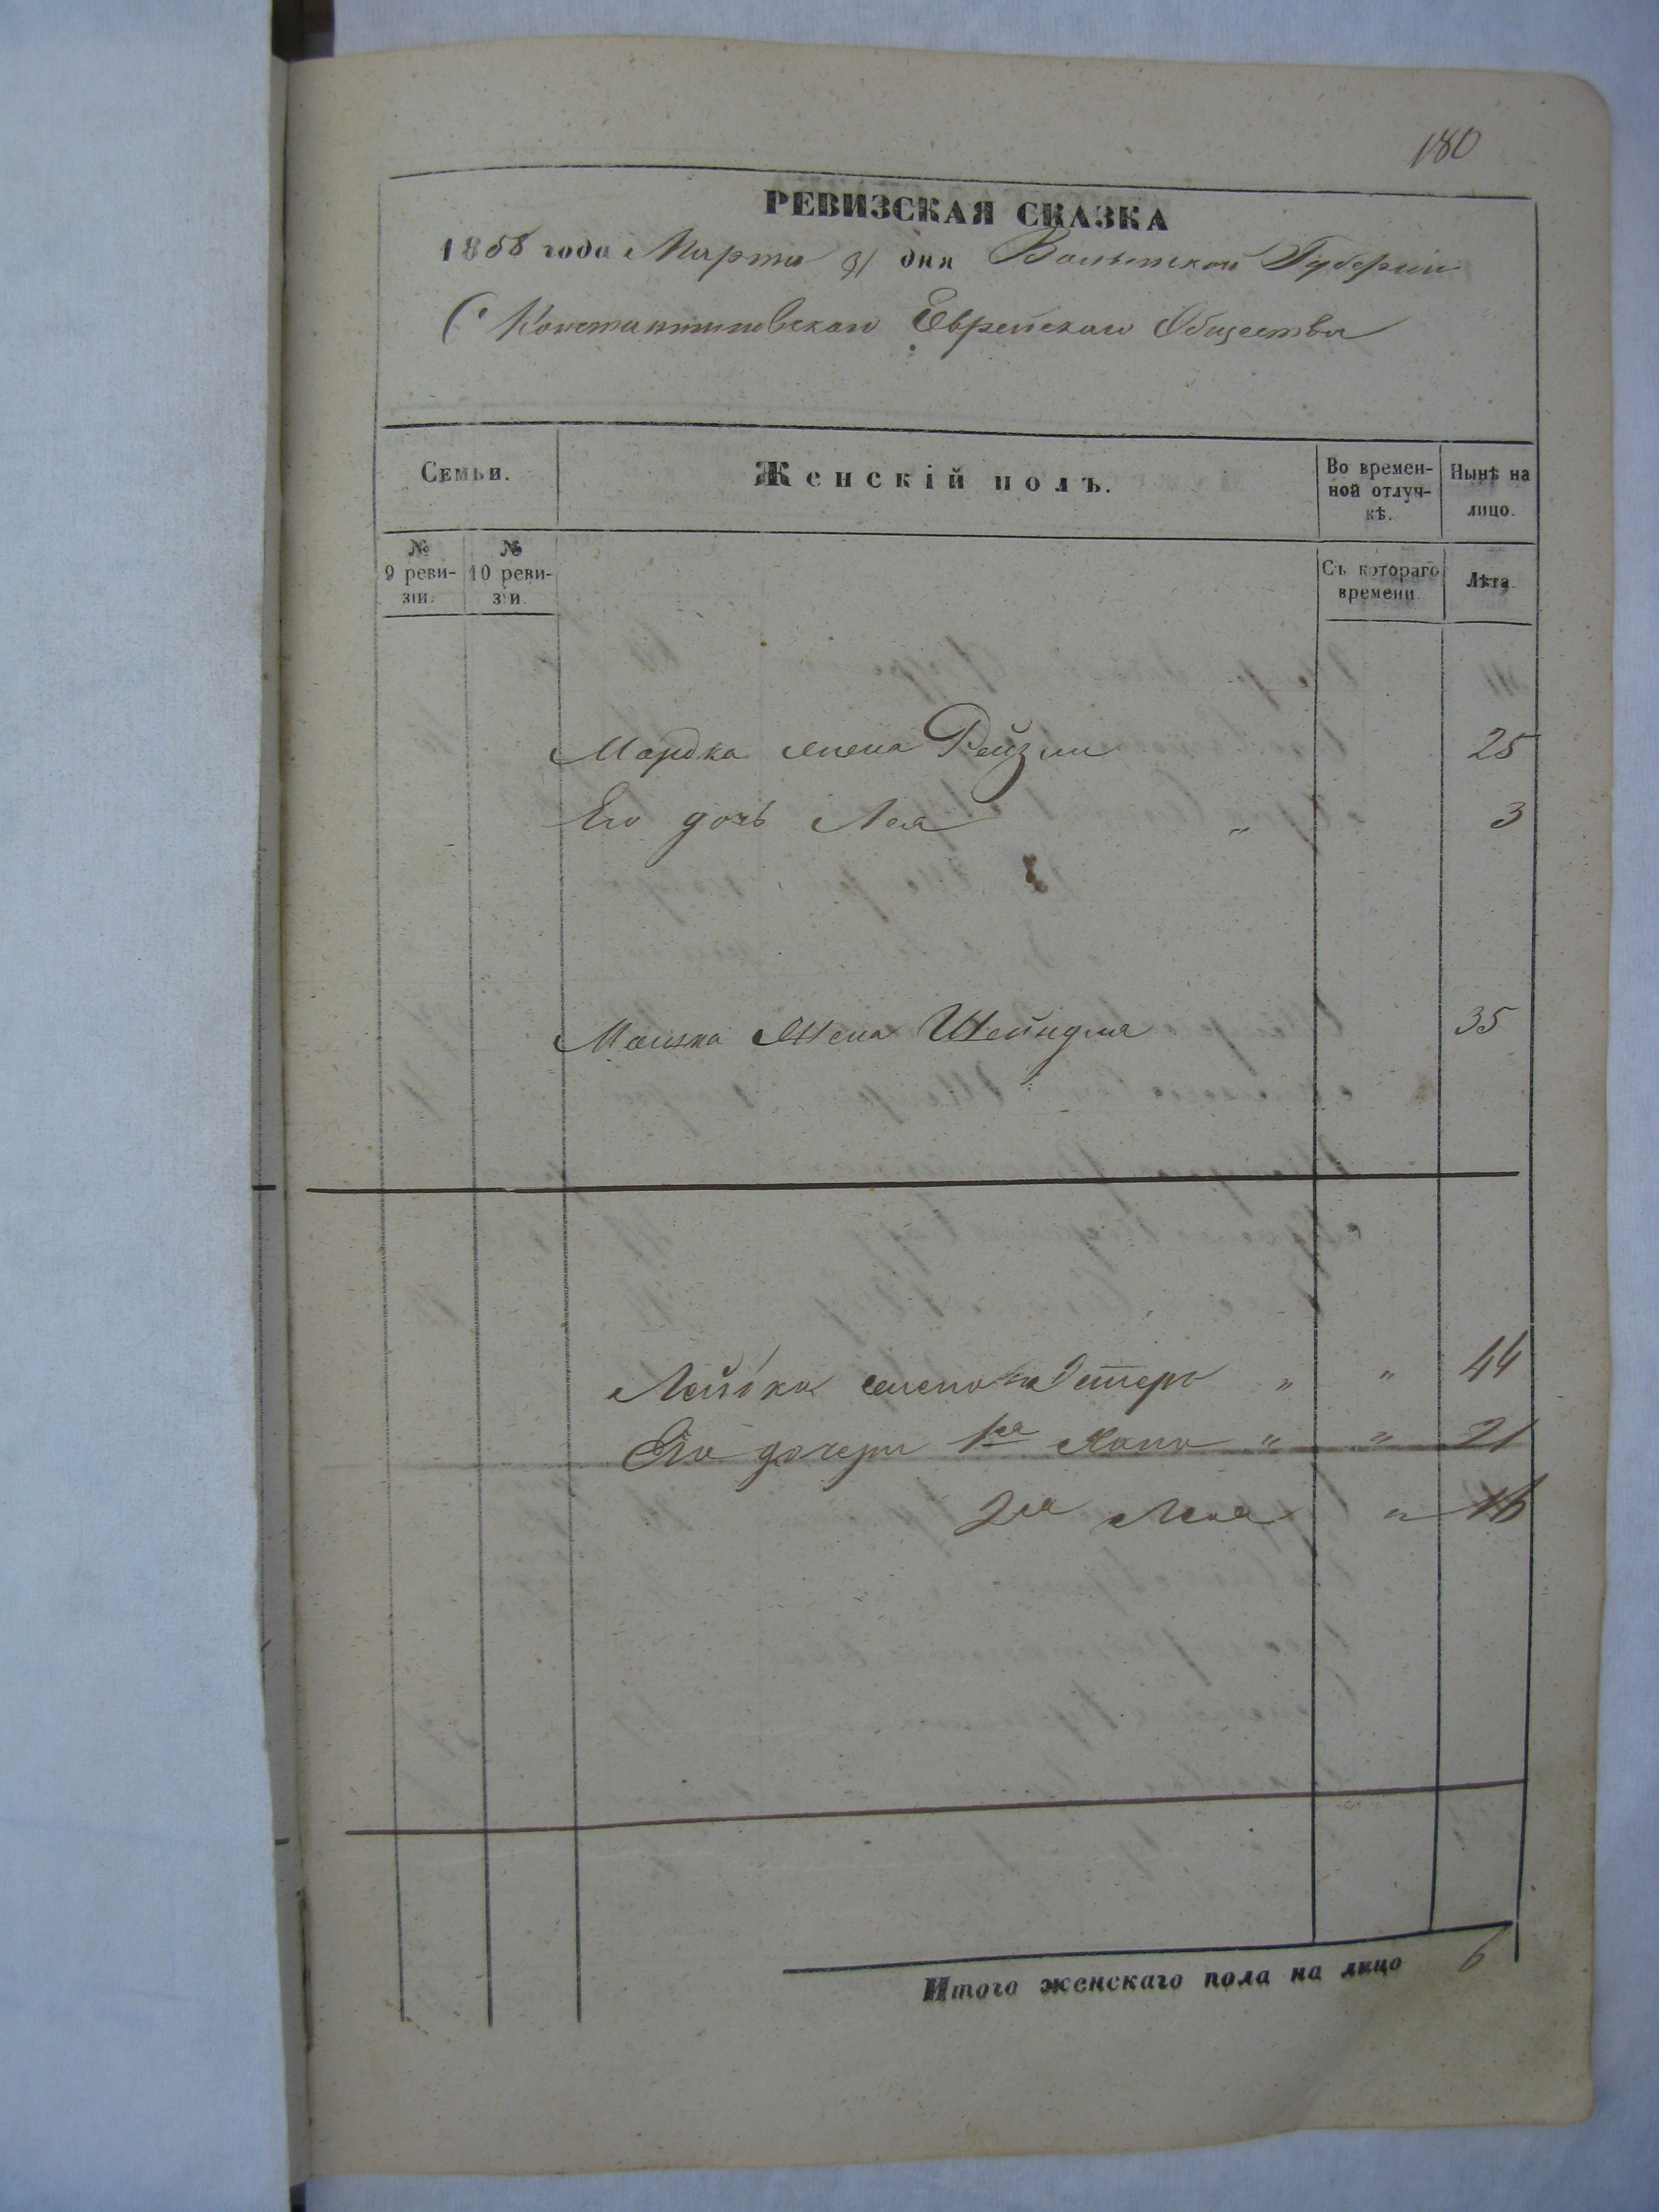 180
РЕВИЗСКАЯ СКАЗКА
1858 года Марта 31 дня Волынской Губернии
С Константиновскаго Еврейскаго Общества
Семьи.
Женскій полъ.
Во времен-
ной отлуч-
кѣ.
Нынѣ на
лицо.
№
9 реви-
зіи.
№
10 реви-
зіи.
Съ котораго
времени.
Лѣта.
Мордка жена Рейзля 25
Его дочь Лея " 3
Мошка Жена Шейндля 35
Лейбка жена Эстера " " 44
Его дочери 1я Хана " " 21
2я Лея " 16
Итого женскаго пола на лицо 6